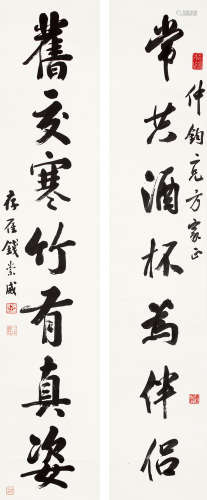 常共酒杯為伴侶
仲鈞言方家正
舊交寒竹有真姿
存雁錢崇威